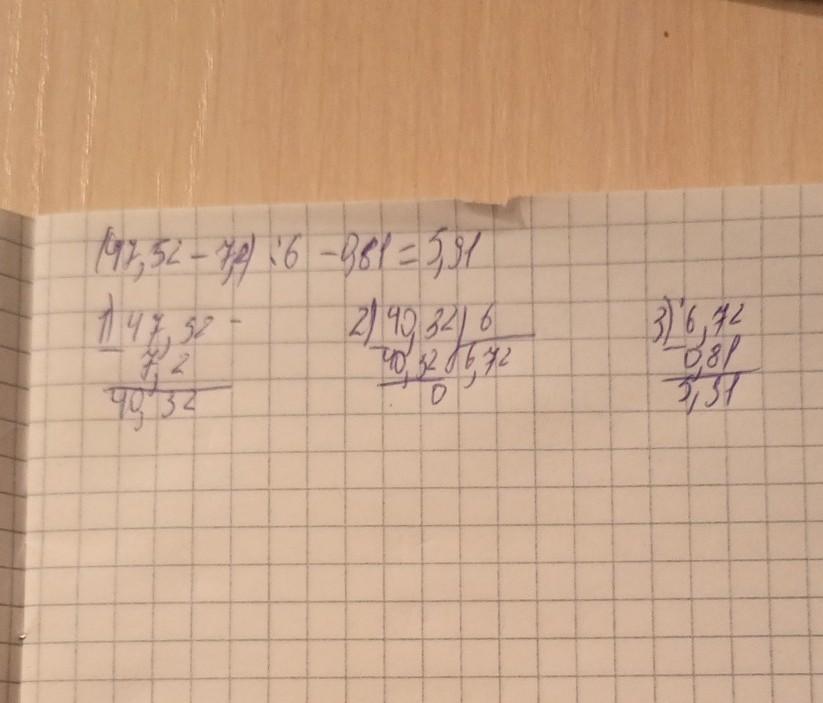 (47,52-7,2):6-0,81=5,91
1) 47,52 2) 40,32 6 3) 6,72
7,2 40,32 6,72 0,81
40,32 0 5,91